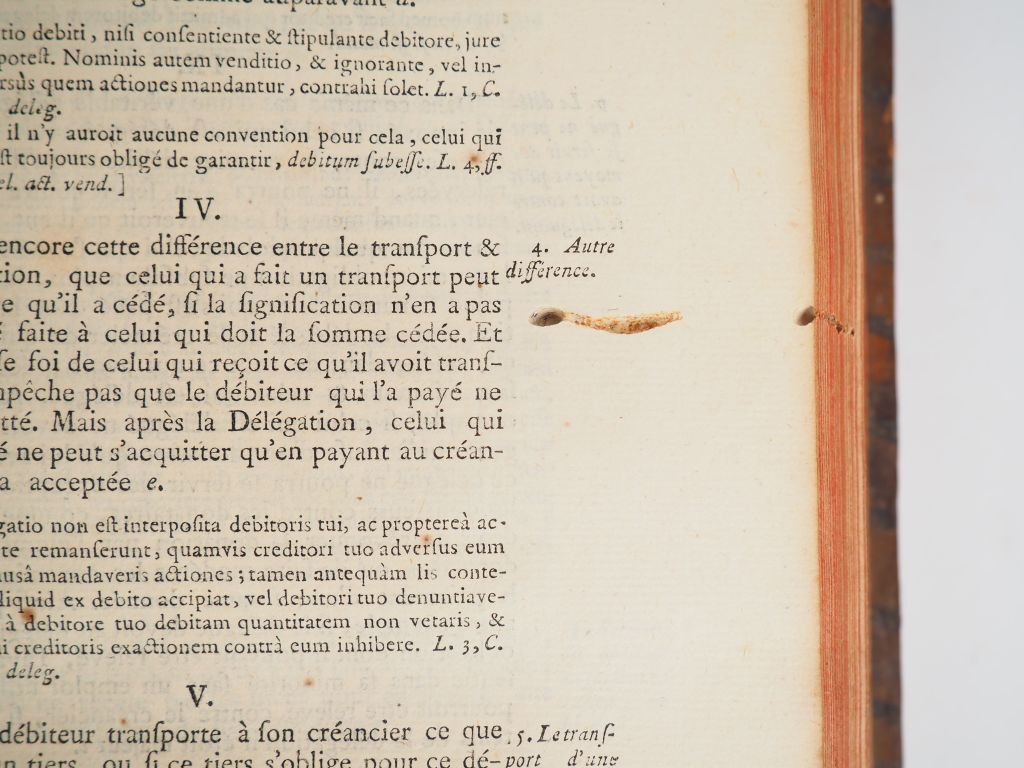 comme auparavant d.
tio debiti, niſi conſentiente & ſtipulante debitore, jure
poteſt. Nominis autem venditio, & ignorante, vel in-
rsùs quem actiones mandantur, contrahi ſolet. L. 1, C.
deleg.
il n'y auroit aucune convention pour cela, celui qui
ſt toujours obligé de garantir, debitum ſubeſſe. L. 4, ff.
el. act. vend. ]
IV.
encore cette différence entre le tranſport &
tion, que celui qui a fait un tranſport peut
e qu'il a cédé, ſi la ſignification n'en a pas
é faite à celui qui doit la ſomme cédée. Et
ſe foi de celui qui reçoit ce qu'il avoit tranſ-
pêche pas que le débiteur qui l'a payé ne
tté. Mais après la Délégation, celui qui
é ne peut s'acquitter qu'en payant au créan-
a acceptée e.
4. Autre
différence.
gatio non eſt interpoſita debitoris tui, ac proptereà ac-
te remanſerunt, quamvis creditori tuo adverſus eum
ausâ mandaveris actiones; tamen antequàm lis conte-
liquid ex debito accipiat, vel debitori tuo denuntiave-
à debitore tuo debitam quantitatem non vetaris, &
i creditoris exactionem contrà eum inhibere. L. 3, C.
deleg.
V.
débiteur tranſporte à ſon créancier ce que
n tiers, ou ſi ce tiers s'oblige pour ce dé-
5. Le tranſ-
port d'une